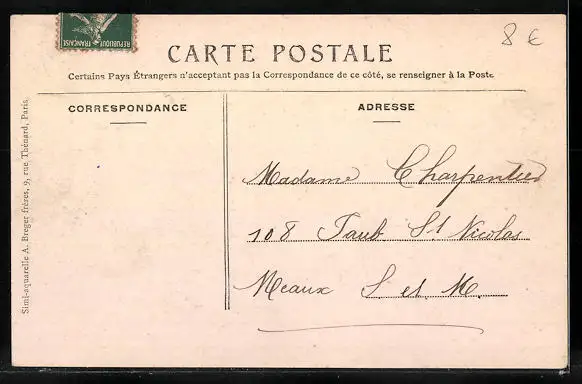 RÉPUBLIQUE FRANÇAISE
8 €
CARTE POSTALE
Certains Pays Étrangers n'acceptant pas la Correspondance de ce côté, se renseigner à la Poste
CORRESPONDANCE
ADRESSE
Madame Charpentier
108 Faub. St Nicolas
Meaux S. et M.
Simi-aquarelle A. Breger frères, 9, rue Thénard, Paris.